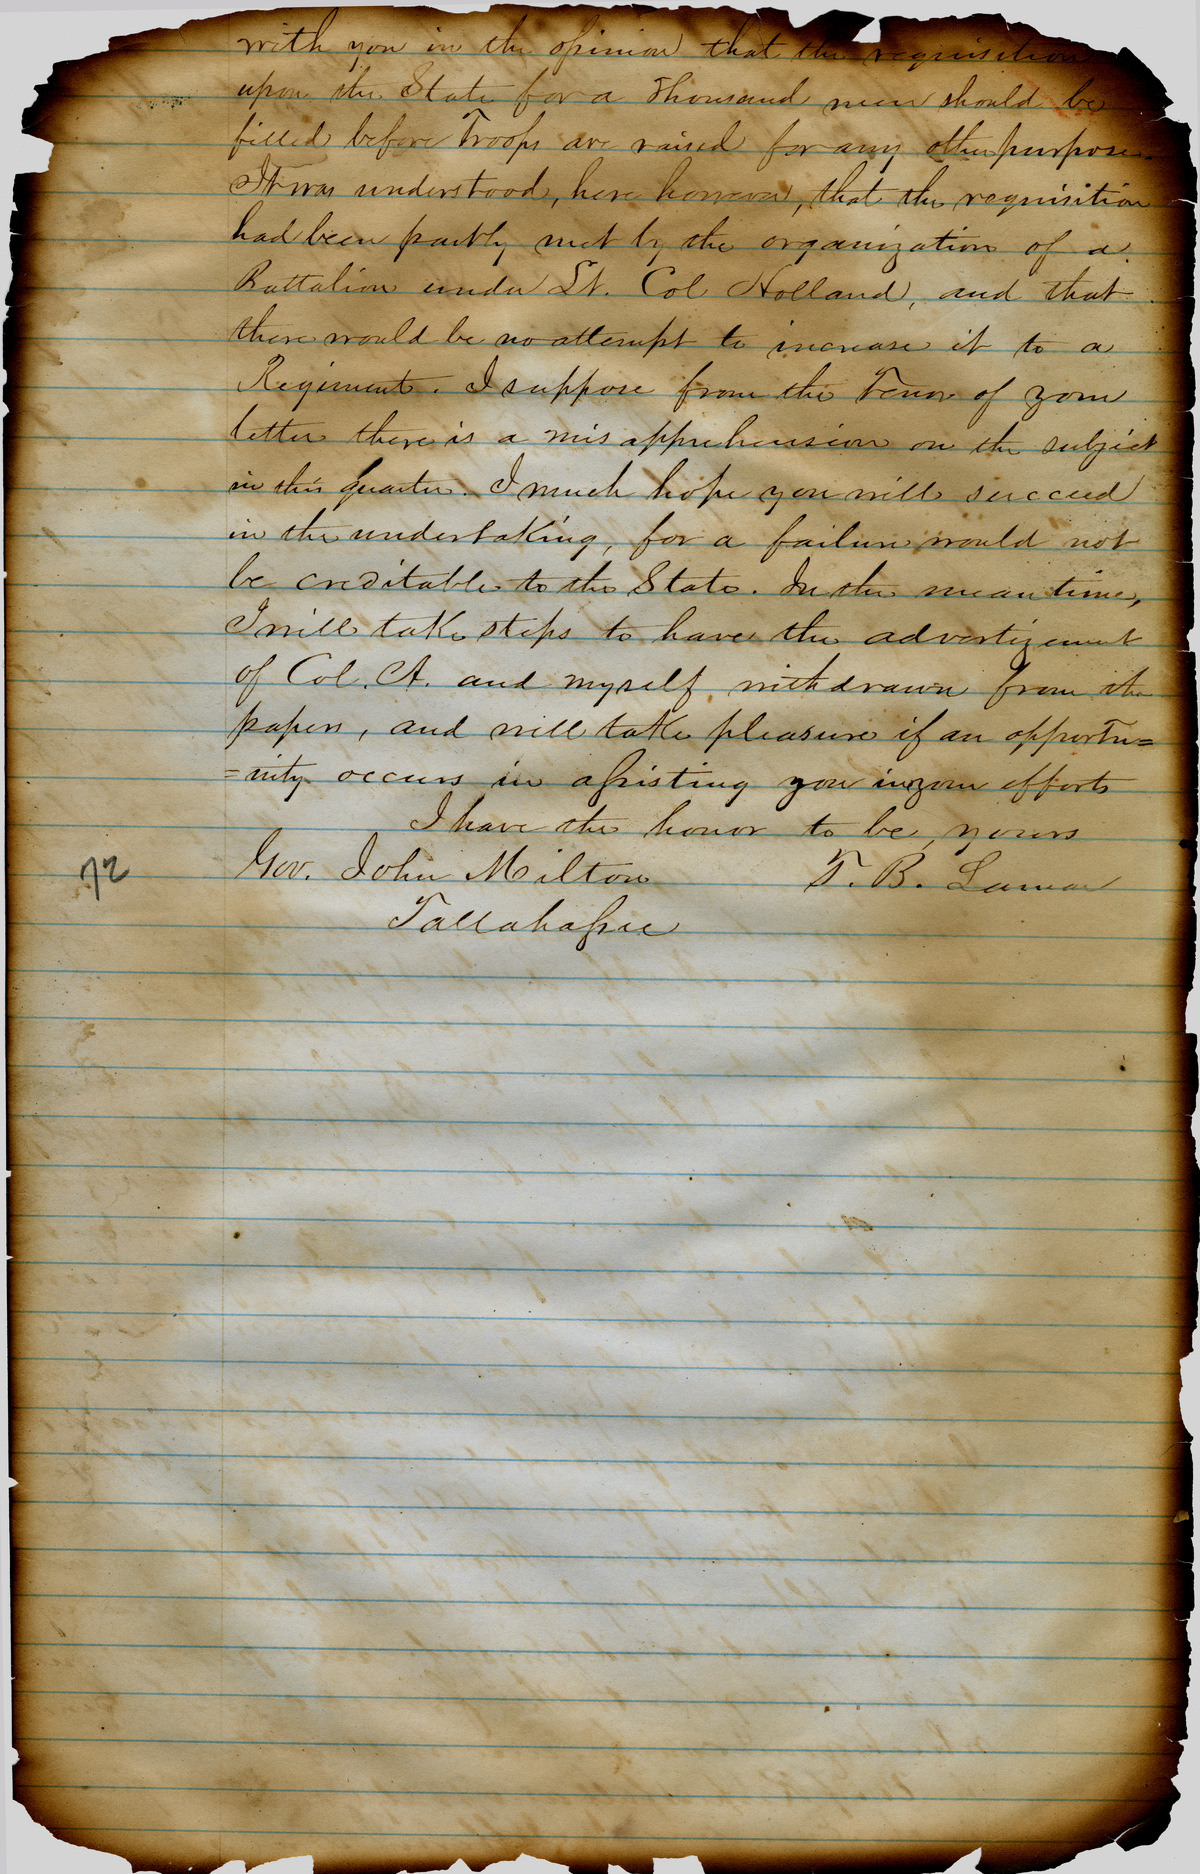 with you in the opinion that the requisition
upon the State for a thousand men should be
filled before Troops are raised for any other purpose.
It was understood, here however, that the requisition
had been partly met by the organization of a
Battalion under Lt. Col Holland, and that
there would be no attempt to increase it to a
Regiment. I suppose from the Tenor of your
letter there is a misapprehension on the subject
in this quarter. I much hope you will succeed
in the undertaking, for a failure would not
be creditable to the State. In the mean time,
I will take steps to have the advertizement
of Col. A. and myself withdrawn from the
papers, and will take pleasure if an opportu=
=nity occurs in assisting you in your efforts
I have the honor to be, yours
Gov. John Milton T. B. Lamar
Tallahassee
72